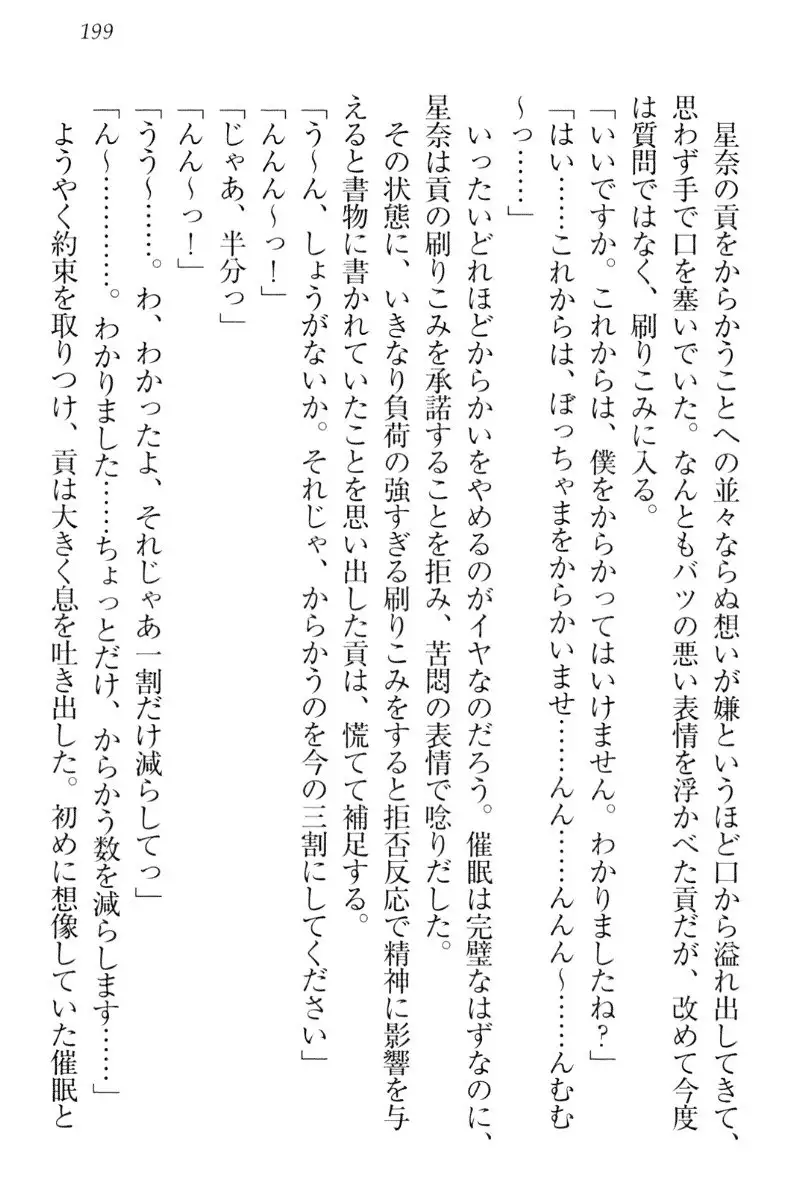 199
星奈の貢をからかうことへの並々ならぬ想いが嫌というほど口から溢れ出してきて、
思わず手で口を塞いでいた。なんともバツの悪い表情を浮かべた貢だが、改めて今度
は質問ではなく、刷りこみに入る。
「いいですか。これからは、僕をからかってはいけません。わかりましたね?」
「はい……これからは、ぼっちゃまをからかいませ……んん……んんん〜……んむむ
〜っ……」
いったいどれほどからかいをやめるのがイヤなのだろう。催眠は完璧なはずなのに、
星奈は貢の刷りこみを承諾することを拒み、苦悶の表情で唸りだした。
その状態に、いきなり負荷の強すぎる刷りこみをすると拒否反応で精神に影響を与
えると書物に書かれていたことを思い出した貢は、慌てて補足する。
「う〜ん、しょうがないか。それじゃ、からかうのを今の三割にしてください」
「んんん〜っ!」
「じゃあ、半分っ」
「んん〜っ!」
「うう〜……。わ、わかったよ、それじゃあ一割だけ減らしてっ」
「ん〜…………。わかりました……ちょっとだけ、からかう数を減らします……」
ようやく約束を取りつけ、貢は大きく息を吐き出した。初めに想像していた催眠と